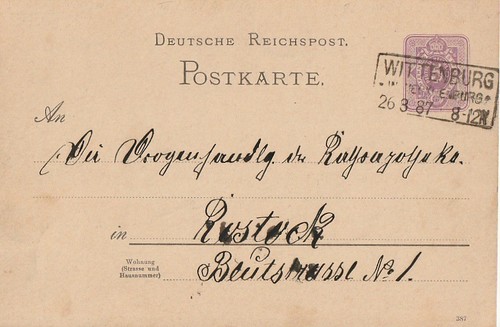 DEUTSCHE REICHSPOST.
POSTKARTE.
WITTENBURG
26 3 87 8-12V
An
Die Drogenhandlg. der Rathsapotheke.
in Rostock
Wohnung
(Strasse und
Hausnummer)
Blutstrasse No 1.
387